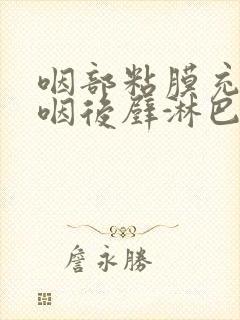 咽部粘膜充
咽後壁淋巴
詹永勝